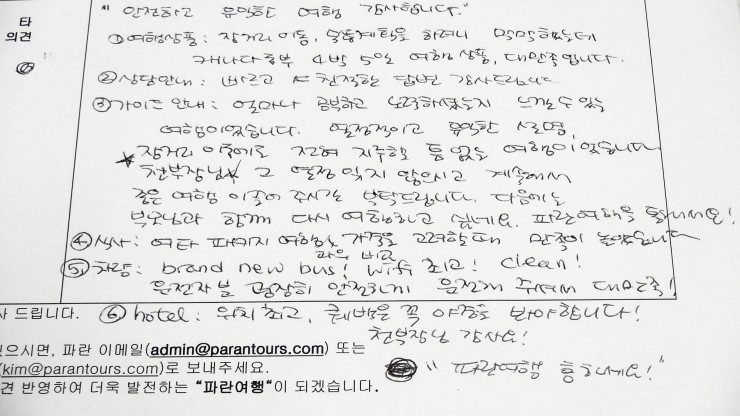 "안전하고 유익한 여행 감사합니다."
타
의견
①여행상품: 장거리 이동, 맞춤계획을 하려니 막막했는데
캐나다동부 4박 5일 여행 상품, 대만족입니다.
②상담안내: 빠르고 친절한 답변 감사드립니다
③가이드 안내: 얼마나 공부하고 노력하셨는지 느낄 수 있는
여행이었습니다. 열정적이고 유익한 설명,
장거리 이동에도 전혀 지루할 틈 없는 여행이었습니다
천부장님 그 열정 잊지 않으시고 계속해서
좋은 여행 이끌어 주시길 부탁드립니다. 다음에는
부모님과 함께 다시 여행하고 싶네요. 파란여행을 통해서요!
④식사: 여타 패키지 여행 가격을 고려할때 만족이 높았습니다
과의 비교
⑤차량: brand new bus! wifi 최고! clean!
운전자분 굉장히 안전하게 운전해 주셔서 대만족!
사 드립니다. ⑥hotel: 위치 최고, 퀘벡은 꼭 야경을 봐야합니다!
천부장님 감사요!
있으시면, 파란 이메일(admin@parantours.com) 또는
(kim@parantours.com)로 보내주세요. "파란여행 흥하세요!"
견 반영하여 더욱 발전하는 "파란여행"이 되겠습니다.